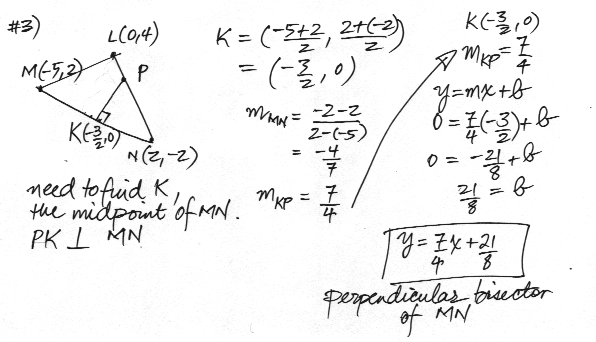 #3)
L(0,4)
M(-5,2)
P
K(-3/2,0)
N(2,-2)
need to find K,
the midpoint of MN.
PK ⊥ MN
K = (-5+2/2, 2+(-2)/2)
= (-3/2, 0)
m_MN = -2-2/2-(-5)
= -4/7
m_KP = 7/4
K(-3/2, 0)
m_KP = 7/4
y = mx + b
0 = 7/4(-3/2) + b
0 = -21/8 + b
21/8 = b
y = 7/4x + 21/8
perpendicular bisector
of MN